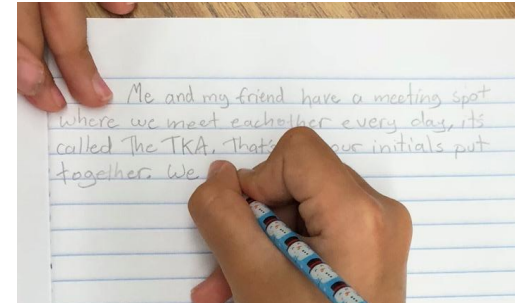 Me and my friend have a meeting spot
where we meet eachother every day, it's
called The TKA. That's our initials put
together. We